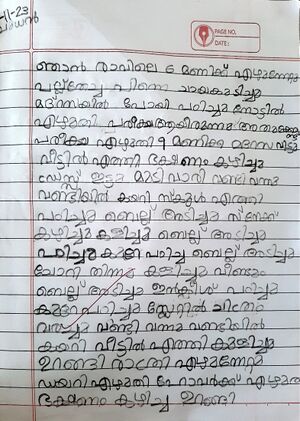 -11-23
PAGE NO.
DATE:
ഞാൻ രാവിലെ 6 മണിക്ക് എഴുന്നേറ്റു
പല്ല്തേച്ചു പിന്നെ ചായകുടിച്ചു
മദ്റസയിൽ പോയി പഠിച്ചു നോട്ടിൽ
എഴുതി പരീക്ഷ ആയിരുന്നു
പരീക്ഷ എഴുതി 9 മണിക്ക് മദ്റസ വിട്ടു
വീട്ടിൽ എത്തി ഭക്ഷണം കഴിച്ചു
ഡ്രസ്സ് ഇട്ടു മുടി വാറി വണ്ടി വന്നു
വണ്ടിയിൽ കയറി സ്കൂൾ എത്തി
പഠിച്ചു ബെല്ല് അടിച്ചു
കഴിച്ചു കളിച്ചു ബെല്ല് അടിച്ചു
പഠിച്ചു കുറേ പഠിച്ചു ബെല്ല് അടിച്ചു
ചോറ് തിന്നു കളിച്ചു വീണ്ടും
ബെല്ല് അടിച്ചു ഇംഗ്ലീഷ് പഠിച്ചു
കുറേ പഠിച്ചു സ്ലേറ്റിൽ ചിത്രം
വരച്ചു വണ്ടി വന്നു വണ്ടിയിൽ
കയറി വീട്ടിൽ എത്തി കുളിച്ചു
ഉറങ്ങി രാത്രി എഴുന്നേറ്റു
ഡയറി എഴുതി ഹോംവർക്ക് എഴുതി
ഭക്ഷണം കഴിച്ചു ഉറങ്ങി